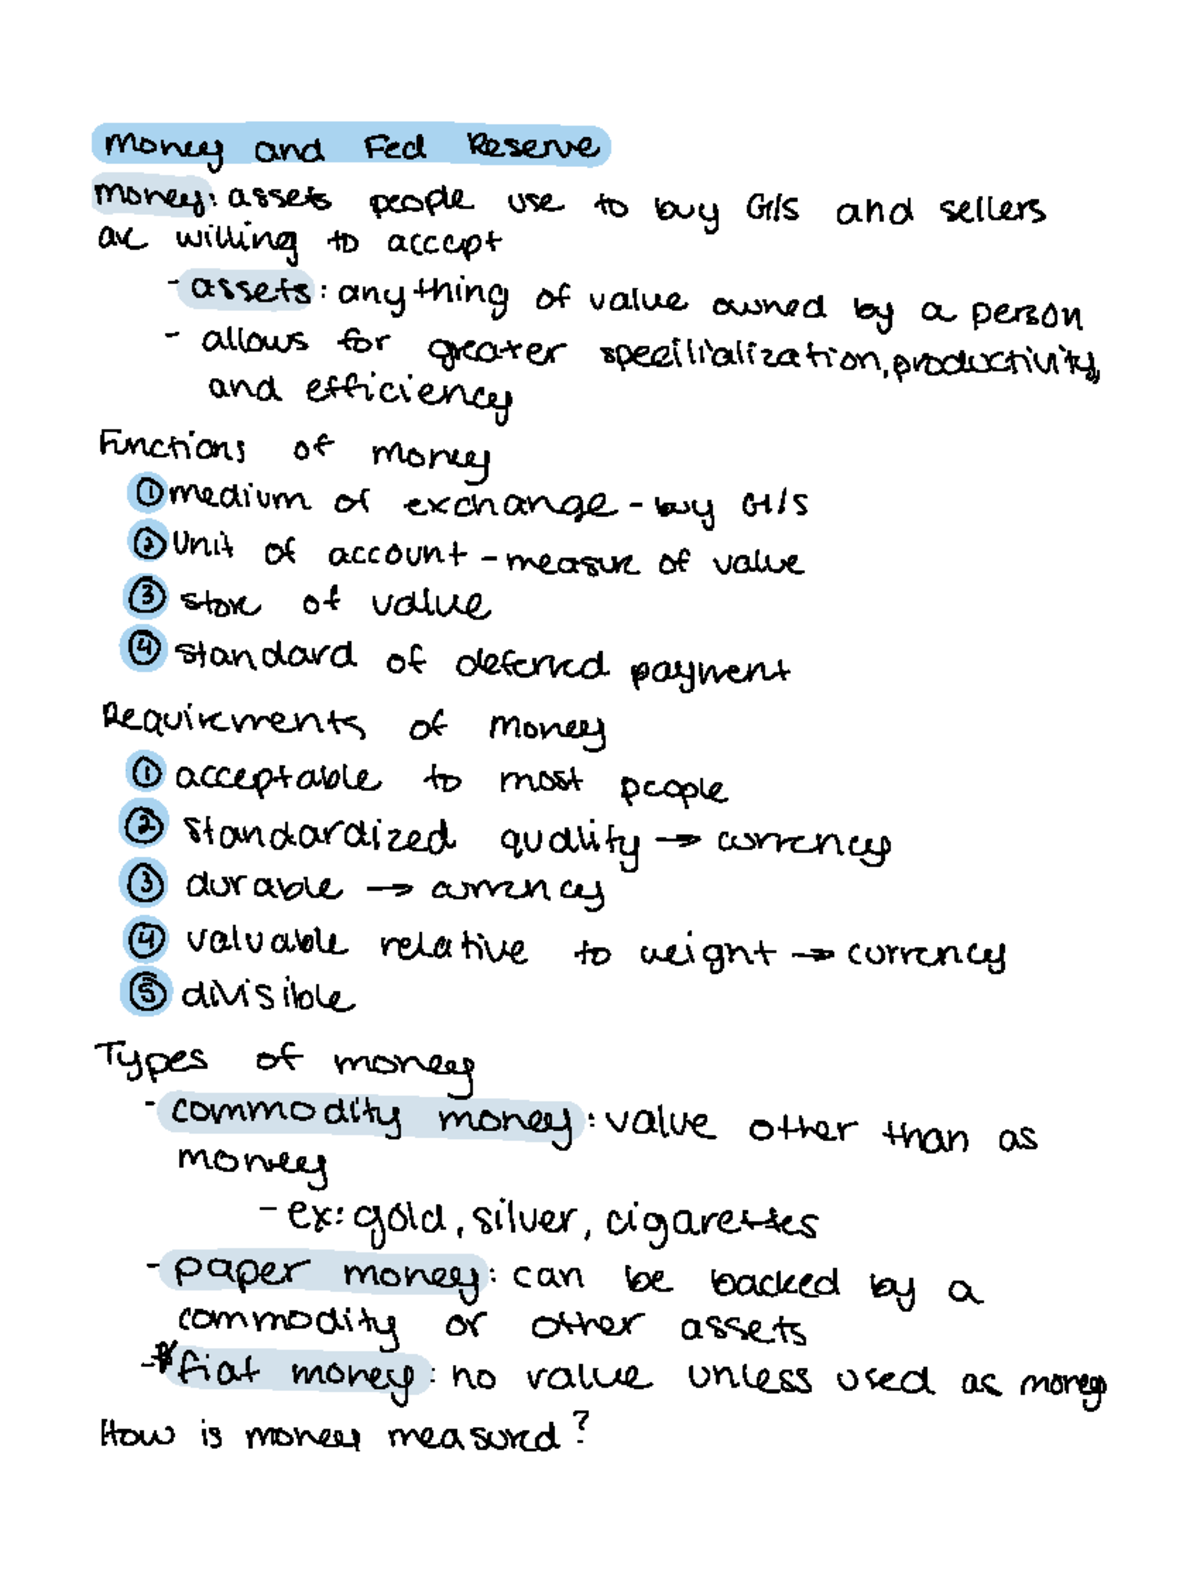 Money and Fed Reserve
money: assets people use to buy G/S and sellers
are willing to accept
- assets: anything of value owned by a person
- allows for greater speciilialization, productivity,
and efficiency
Functions of money
① medium of exchange - buy G/S
② Unit of account - measure of value
③ store of value
④ standard of deferred payment
Requirements of money
① acceptable to most people
② standardized quality → currency
③ durable → currency
④ valuable relative to weight → currency
⑤ divisible
Types of money
- commodity money: value other than as
money
- ex: gold, silver, cigarettes
- paper money: can be backed by a
commodity or other assets
-* fiat money: no value unless used as money
How is money measured?